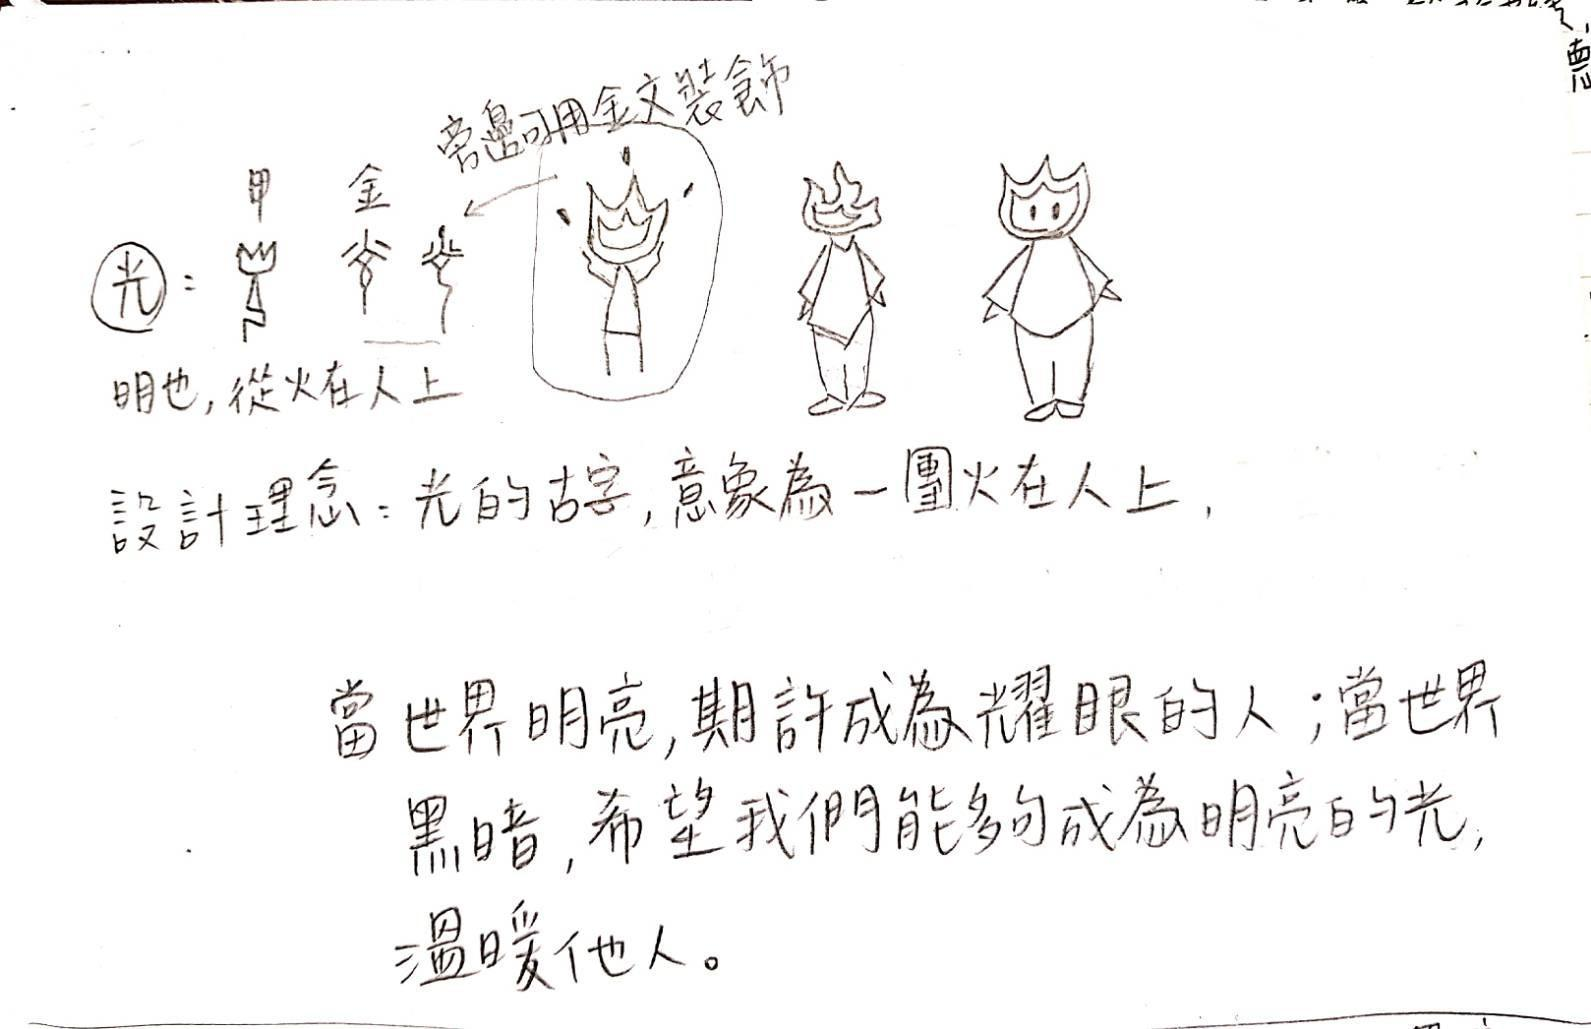 旁邊可用金文裝飾
甲 金
光：
明也，從火在人上
設計理念：光的古字，意象為一團火在人上，
當世界明亮，期許成為耀眼的人；當世界
黑暗，希望我們能夠成為明亮的光，
溫暖他人。